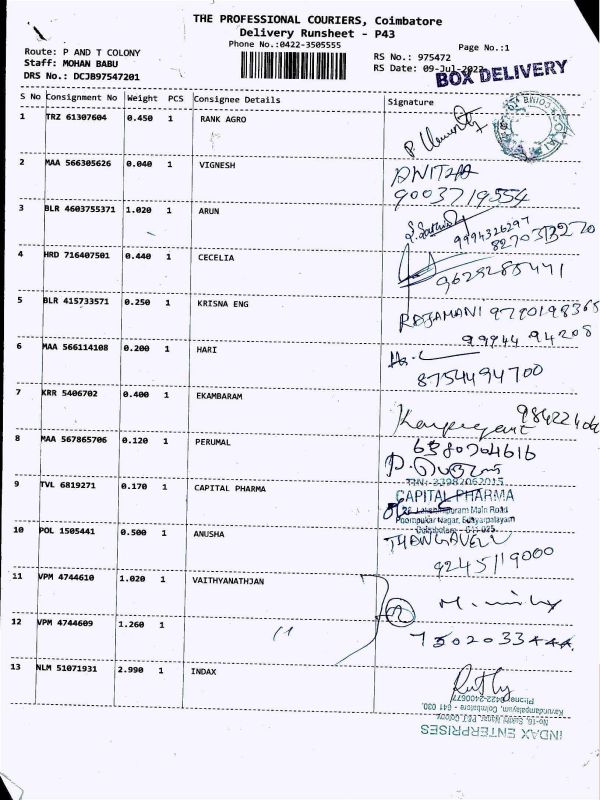 THE PROFESSIONAL COURIERS, Coimbatore
Delivery Runsheet - P43
Phone No.:0422-3505555
Page No.:1
Route: P AND T COLONY
Staff: MOHAN BABU
DRS No.: DCJB97547201
RS No.: 975472
RS Date: 09-Jul-2022
BOX DELIVERY
S No Consignment No Weight PCS Consignee Details Signature
1 TRZ 61307604 0.450 1 RANK AGRO
2 MAA 566305626 0.040 1 VIGNESH
9003719554
3 BLR 4603755371 1.020 1 ARUN
9994326297
8270313270
4 HRD 716407501 0.440 1 CECELIA
9629288441
5 BLR 415733571 0.250 1 KRISNA ENG
RAJAMANI 9790198365
99944 94208
6 MAA 566114108 0.200 1 HARI
8754494700
7 KRR 5406702 0.400 1 EKAMBARAM
8 MAA 567865706 0.120 1 PERUMAL
6380704616
9 TVL 6819271 0.170 1 CAPITAL PHARMA
CAPITAL PHARMA
Main Road
Poompukar Nagar,
10 POL 1505441 0.500 1 ANUSHA
THANGAVELU
9245119000
11 VPM 4744610 1.020 1 VAITHYANATHJAN
12 VPM 4744609 1.260 1
13 NLM 51071931 2.990 1 INDAX
Ph: 0422-2400677
Kavundampalayam, Coimbatore - 641 030.
INDAX ENTERPRISES